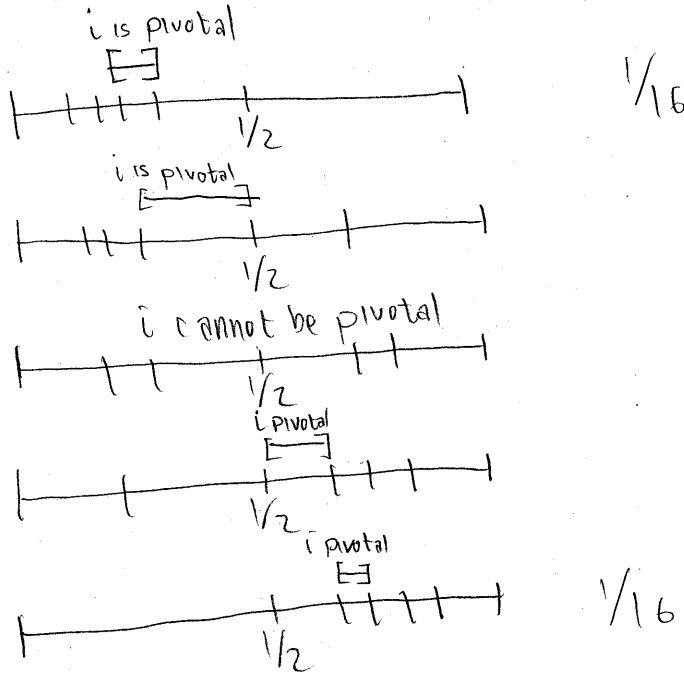 i is pivotal
1/2
1/16
i is pivotal
1/2
i cannot be pivotal
1/2
i pivotal
1/2
i pivotal
1/2
1/16